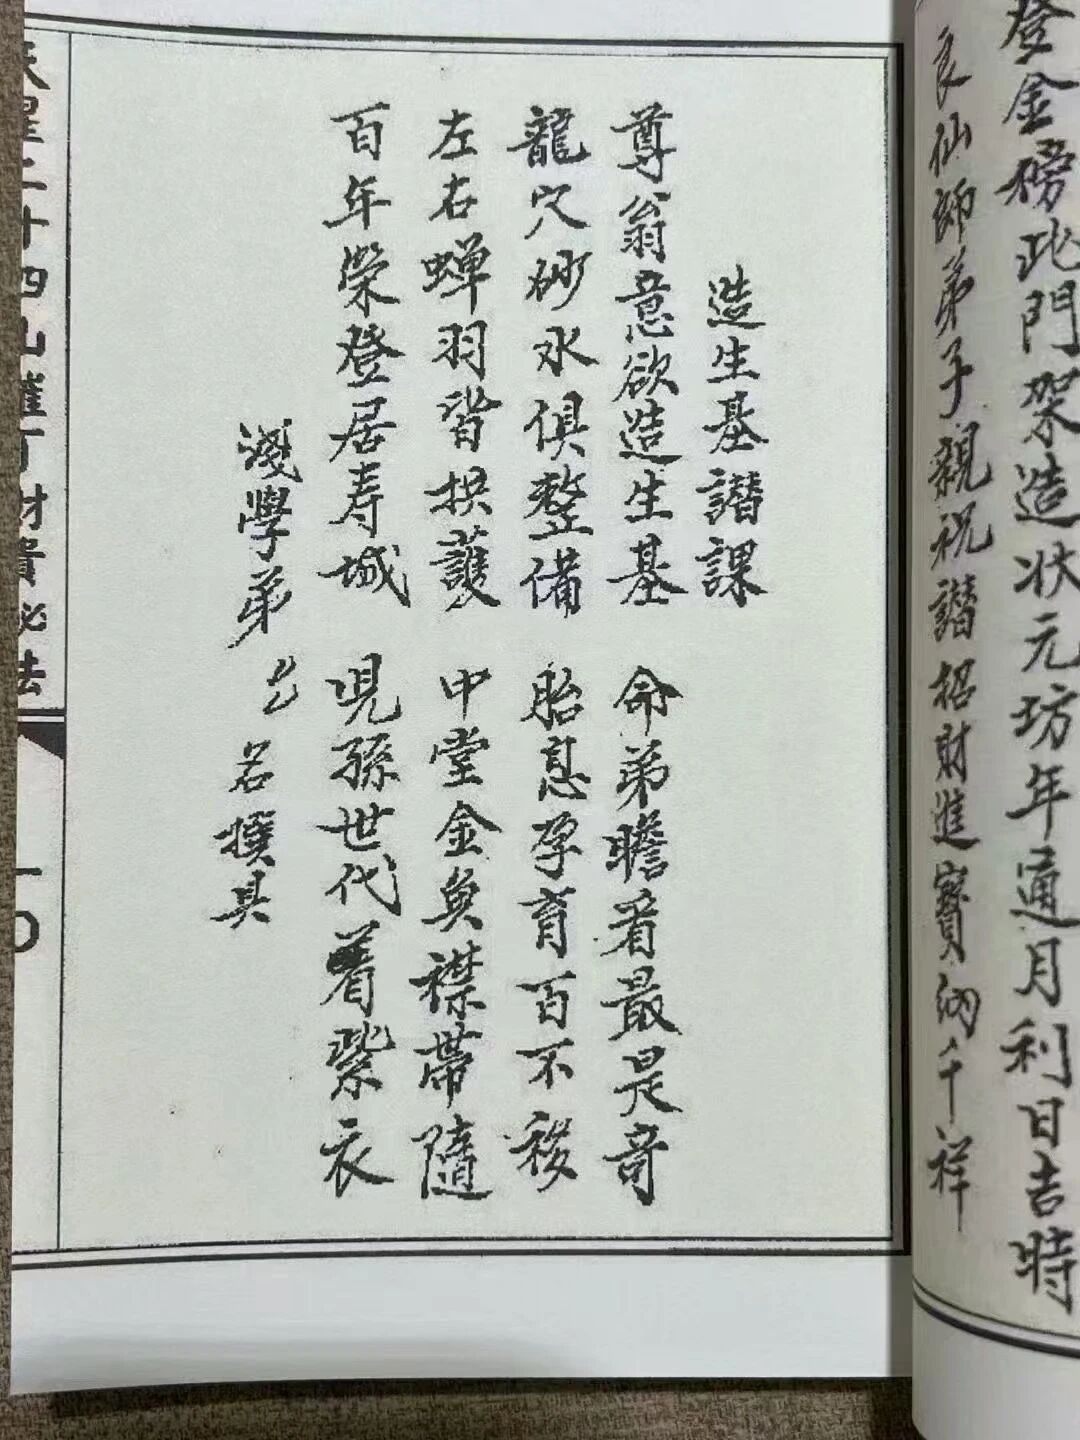 登金榜此門架造状元坊年通月利日吉時
良仙師弟子親祝譛招財進寶納千祥
造生基譛課
尊翁意欲造生基 命弟瞻看最是竒
龍穴砂水俱整備 胎息孕育百不移
左右蝉羽皆拱護 中堂金魚襟帯隨
百年榮登居寿城 児孫世代着紫衣
淺學弟 名撰具
天星二十四山催丁財貴秘法
一〇